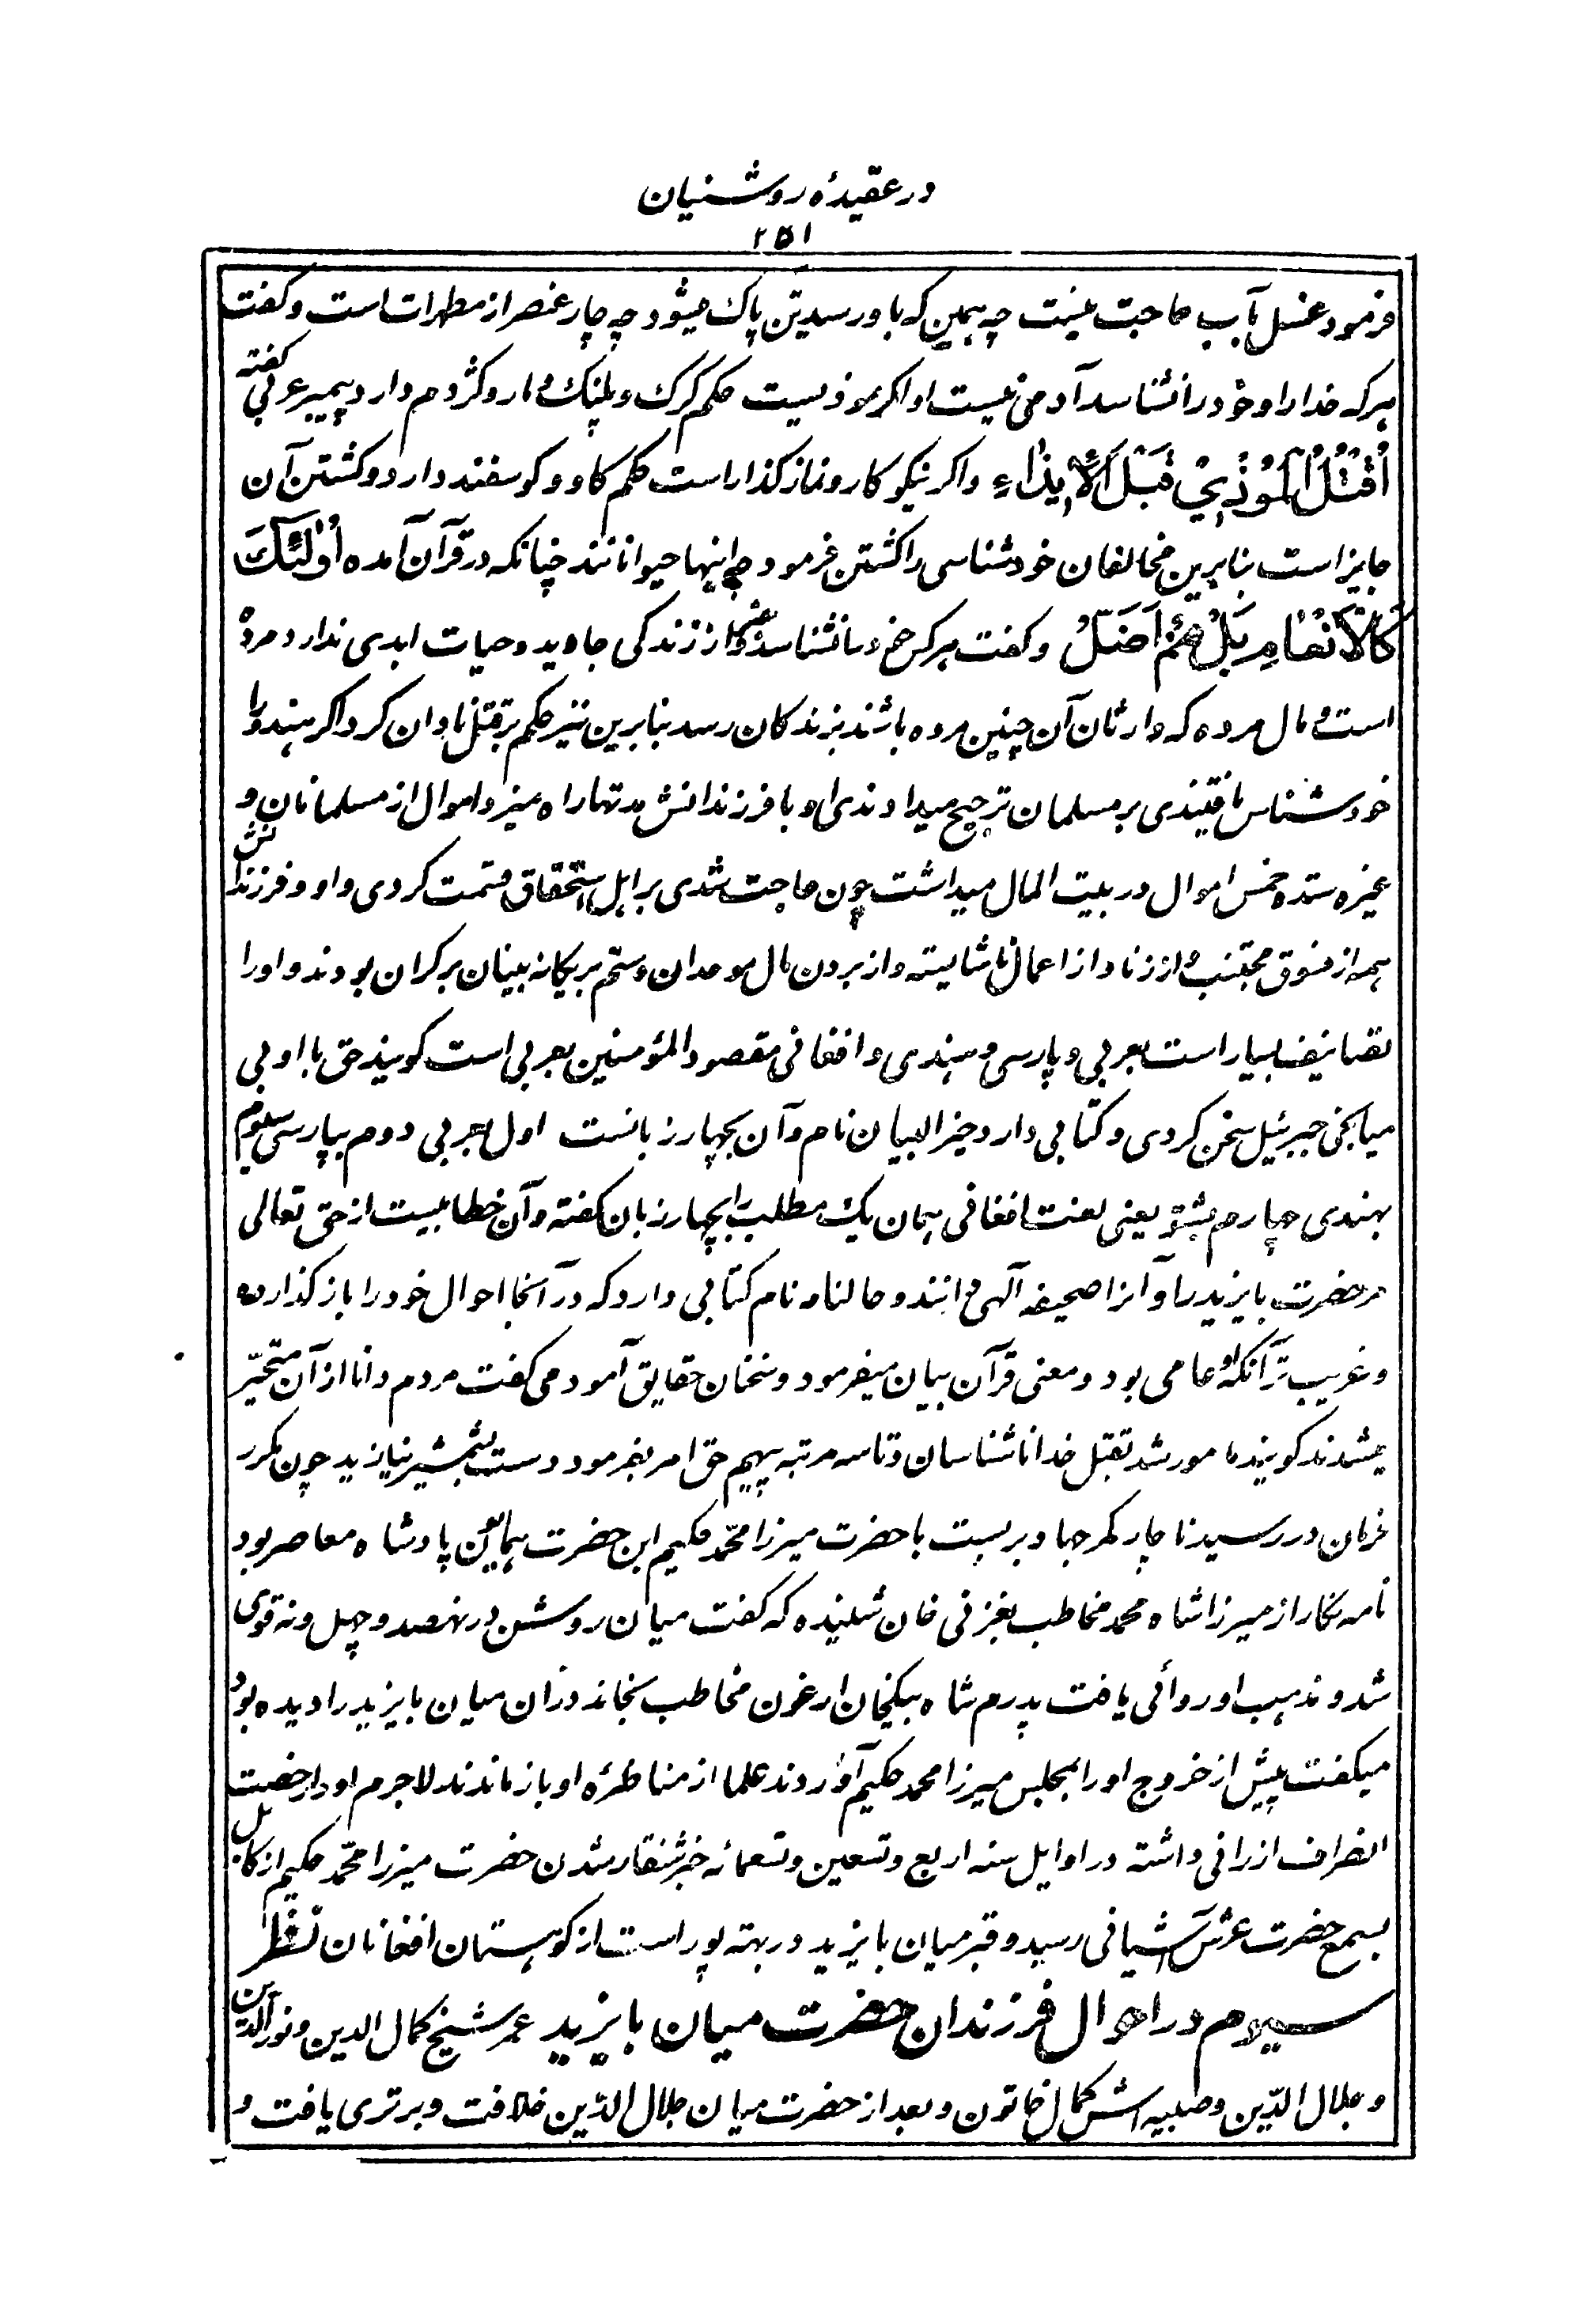 در عقیدهٔ روشنیان
۲۵۱
فرمود غسل بآب حاجت نیست چه همین که باد رسد تن پاک میشود چه چار عنصر از مطهرات است و کفت
هر که خدا را و خود را نشناسد آدمی نیست او اکر موذیست حکم کرک و پلنک و مار و کژدم دارد پیمبر عربی کفته
اُقْتُلُ الْمُوْذِيْ قَبْلَ الْاِیْذَاءِ واکر نیکو کار و نماز کذار است حکم کاو و کوسفند دارد و کشتن آن
جایز است بنابرین مخالفان خودشناسی را کشتن فرمود چه اینها حیوانانند چنانکه در قرآن آمده اُولٰئِکَ
کَالْاَنْعَامِ بَلْ هُمْ اَضَلُّ و کفت هر کس خود را نشناسد و از زندکی جاوید و حیات ابدی ندارد مرده
است و مال مرده که وارثان آن چنین مرده باشند بزندکان رسد بنابرین نیز حکم بقتل نادان کرد اکر هندو را
خود شناس یافتندی بر مسلمان ترجیح میدادندی او با فرزندانش مدتها راه میزد و اموال از مسلمانان و
غیره ستده خمس اموال در بیت المال میداشت چون حاجت شدی بر اهل استحقاق قسمت کردی و او و فرزندانش
همه از فسوق مجتنب و از زنا و از اعمال ناشایسته و از بردن مال موحدان و ستم بر یکانه بینان بر کران بودند و او را
تصانیف بسیار است بعربی و پارسی و هندی و افغانی مقصود المؤمنین بعربی است کویند حق با او بی
میانجی جبرئیل سخن کردی و کتابی دارد خیر البیان نام و آن بچهار زبانست اول بعربی دوم بپارسی سیوم
بهندی چهارم پشتو یعنی لغت افغانی همان یک مطلب را بچهار زبان کفته و آن خطابیست از حق تعالی
مر حضرت بایزید را و آنرا صحیفه آلهی دانند و حالنامه نام کتابی دارد که در آنجا احوال خود را باز کذارده
و غریب تر آنکه او عامی بود و معنی قرآن بیان میفرمود و سخنان حقایق آمود می کفت مردم دانا از آن متحیّر
میشدند کویند مامور شد بقتل خدا ناشناسان و تا سه مرتبه پیهم حق امر بفرمود دست بشمشیر نیازید چون مکرر
فرمان در رسید ناچار کمر جهاد بر بست با حضرت میرزا محمّد حکیم ابن حضرت همایون پادشاه معاصر بود
نامه نکار از میرزا شاه محمد مخاطب بغزنی خان شنیده که کفت میان روشن در نهصد و چهل و نه قوی
شد و مذهب او روائی یافت پدرم شاه بیکخان ارغون مخاطب بخاندوران میان بایزید را دیده بود
میکفت پیش از خروج او را بمجلس میرزا محمد حکیم آوردند علما از مناظرهٔ او باز ماندند لاجرم او را رخصت
انصراف ارزانی داشته در اوایل سنه اربع و تسعین و تسعمائه خبر شنقار شدن حضرت میرزا محمّد حکیم از کابل
بسمع حضرت عرش آشیانی رسید و قبر میان بایزید در بهته پور است از کوهستان افغانان نظر
سیوم در احوال فرزندان حضرت میان بایزید عمر شیخ کمال الدین و نور الدین
و جلال الدّین و صبیه اش کمال خاتون و بعد از حضرت میان جلال الدّین خلافت و برتری یافت و